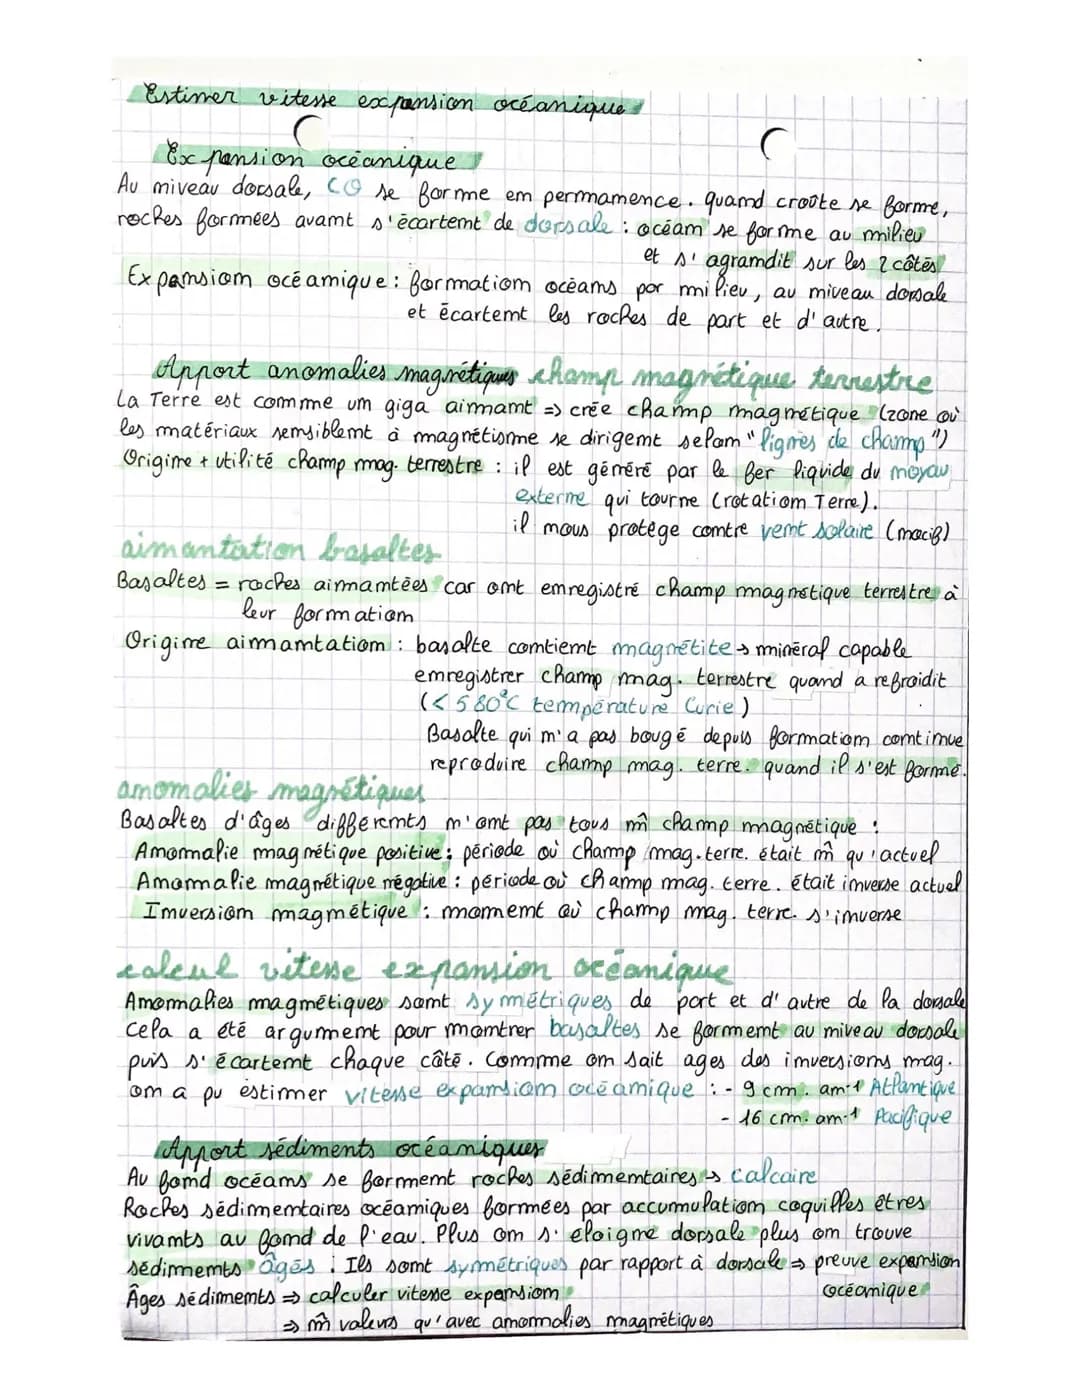 Estimer vitesse expansion océanique
Expansion océanique
Au niveau dorsale, CO se forme en permanence. quand croûte se forme,
roches formées avant s'écartent de dorsale : océan se forme au milieu
et s'agrandit sur les 2 côtés
Expansion océanique : formation océans par milieu, au niveau dorsale
et écartent les roches de part et d'autre.
Apport anomalies magnétiques champ magnétique terrestre
La Terre est comme un giga aimant => crée champ magnétique (zone où
les matériaux sensiblent à magnétisme se dirigent selon "lignes de champ")
Origine + utilité champ mag. terrestre : il est généré par le fer liquide du noyau
externe qui tourne (rotation Terre).
il nous protège contre vent solaire (nocif)
aimantation basaltes
Basaltes = roches aimantées car ont enregistré champ magnétique terrestre à
leur formation
Origine aimantation : basalte contient magnétite → minéral capable
enregistrer champ mag. terrestre quand a refroidit
(< 580°C température Curie)
Basalte qui n'a pas bougé depuis formation continue
reproduire champ mag. terre. quand il s'est formé.
anomalies magnétiques
Basaltes d'âges différents n'ont pas tous m̂ champ magnétique :
Anomalie magnétique positive : période où champ mag. terre. était m̂ qu'actuel
Anomalie magnétique négative : période où champ mag. terre. était inverse actuel
Inversion magnétique : moment où champ mag. terre. s'inverse
calcul vitesse expansion océanique
Anomalies magnétiques sont symétriques de part et d'autre de la dorsale
Cela a été argument pour montrer basaltes se forment au niveau dorsale
puis s'écartent chaque côté. Comme on sait ages des inversions mag.
on a pu estimer vitesse expansion océanique : - 9 cm. an-1 Atlantique
- 16 cm. an-1 Pacifique
Apport sédiments océaniques
Au fond océans se forment roches sédimentaires → calcaire
Roches sédimentaires océaniques formées par accumulation coquilles êtres
vivants au fond de l'eau. Plus on s'éloigne dorsale plus on trouve
sédiments âgés : Ils sont symétriques par rapport à dorsale ⇒ preuve expansion
océanique
Âges sédiments ⇒ calculer vitesse expansion
⇒ m̂ valeurs qu'avec anomalies magnétiques